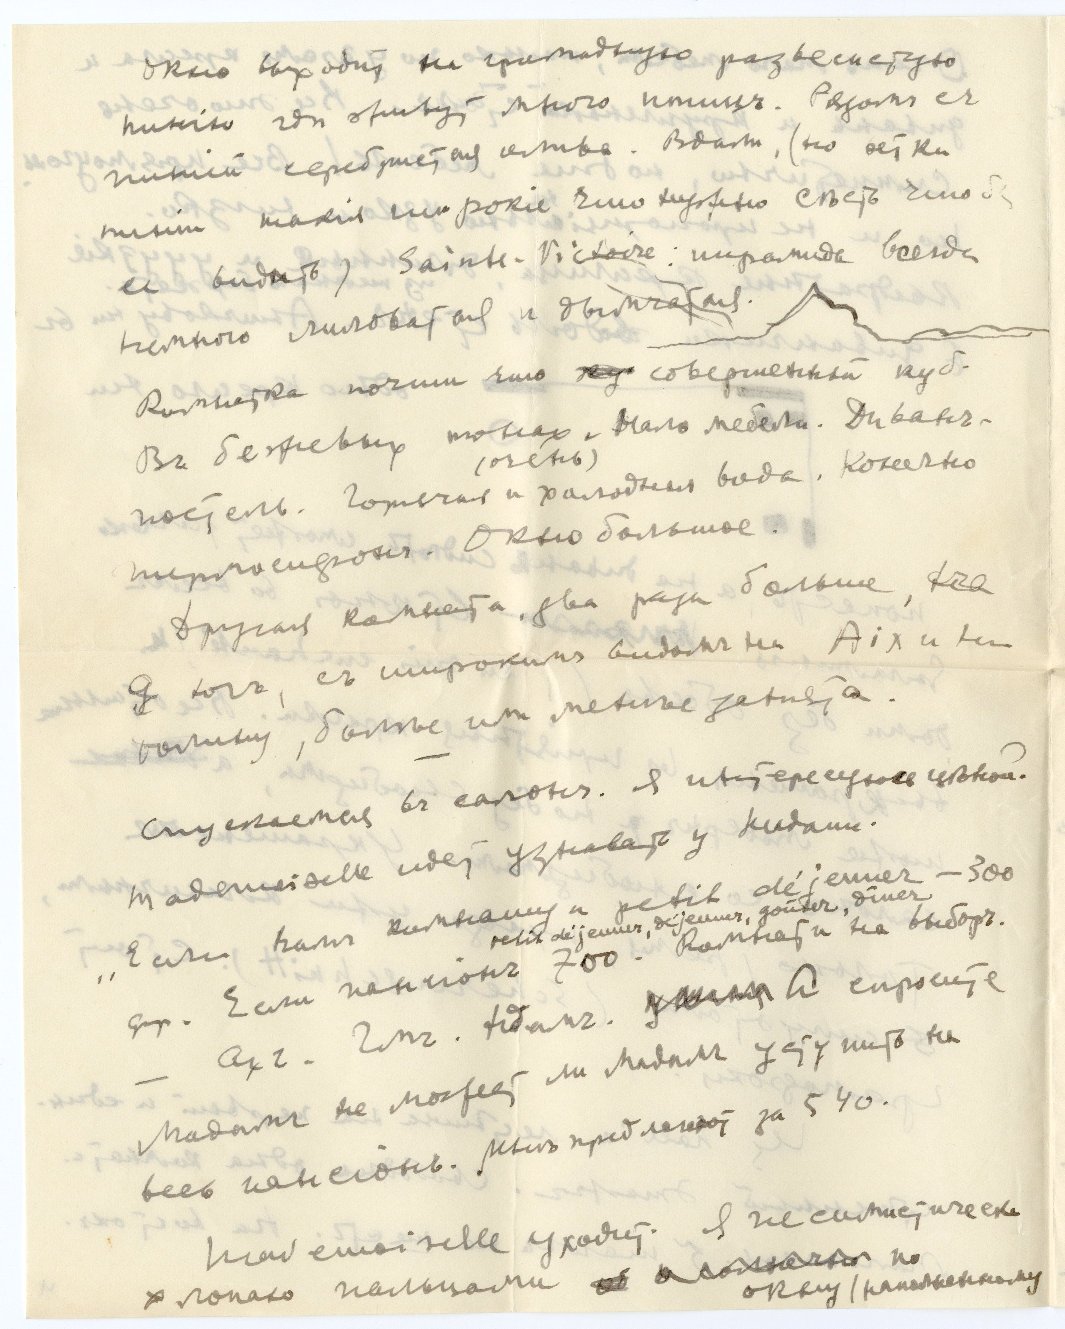 Окно выходит на громадную развесистую
пинiю где живут много птицъ. Рядомъ съ
пинiей серебристая олива. Вдали, (но ветки
пинiи такiя широкiе что нужно сесть чтобы
ее видить) Sainte-Victoire: пирамида всегда
немного лиловатая и дымчатая.
Комнатка почти что совершенный куб.
Въ бежевых тонах. Мало мебели. Диванъ-
(очень)
постель. Горячая и холодная вода. Конечно
термосифонъ. Окно большое.
Другая комната, два раза больше,
съ широкимъ видомъ на Aix и на
долину, более или менее занята.
Спускаемся въ салонъ. Я интересуюсь цѣной.
Mademoiselle идет узнавать у Мадам.
„Если вамъ комнату и petit déjeuner – 300
petit déjeuner, déjeuner, goûter, dîner
фр. Если пансiонъ 700. Комнаты на выборъ.
– Ахъ. Гмъ. А спросите
Мадамъ не может ли Мадамъ уступить на
весь пансiонъ. Мнѣ предлагают за 540.
Mademoiselle уходит. Я пессимистически
хлопаю пальцами по
окну (наполненному